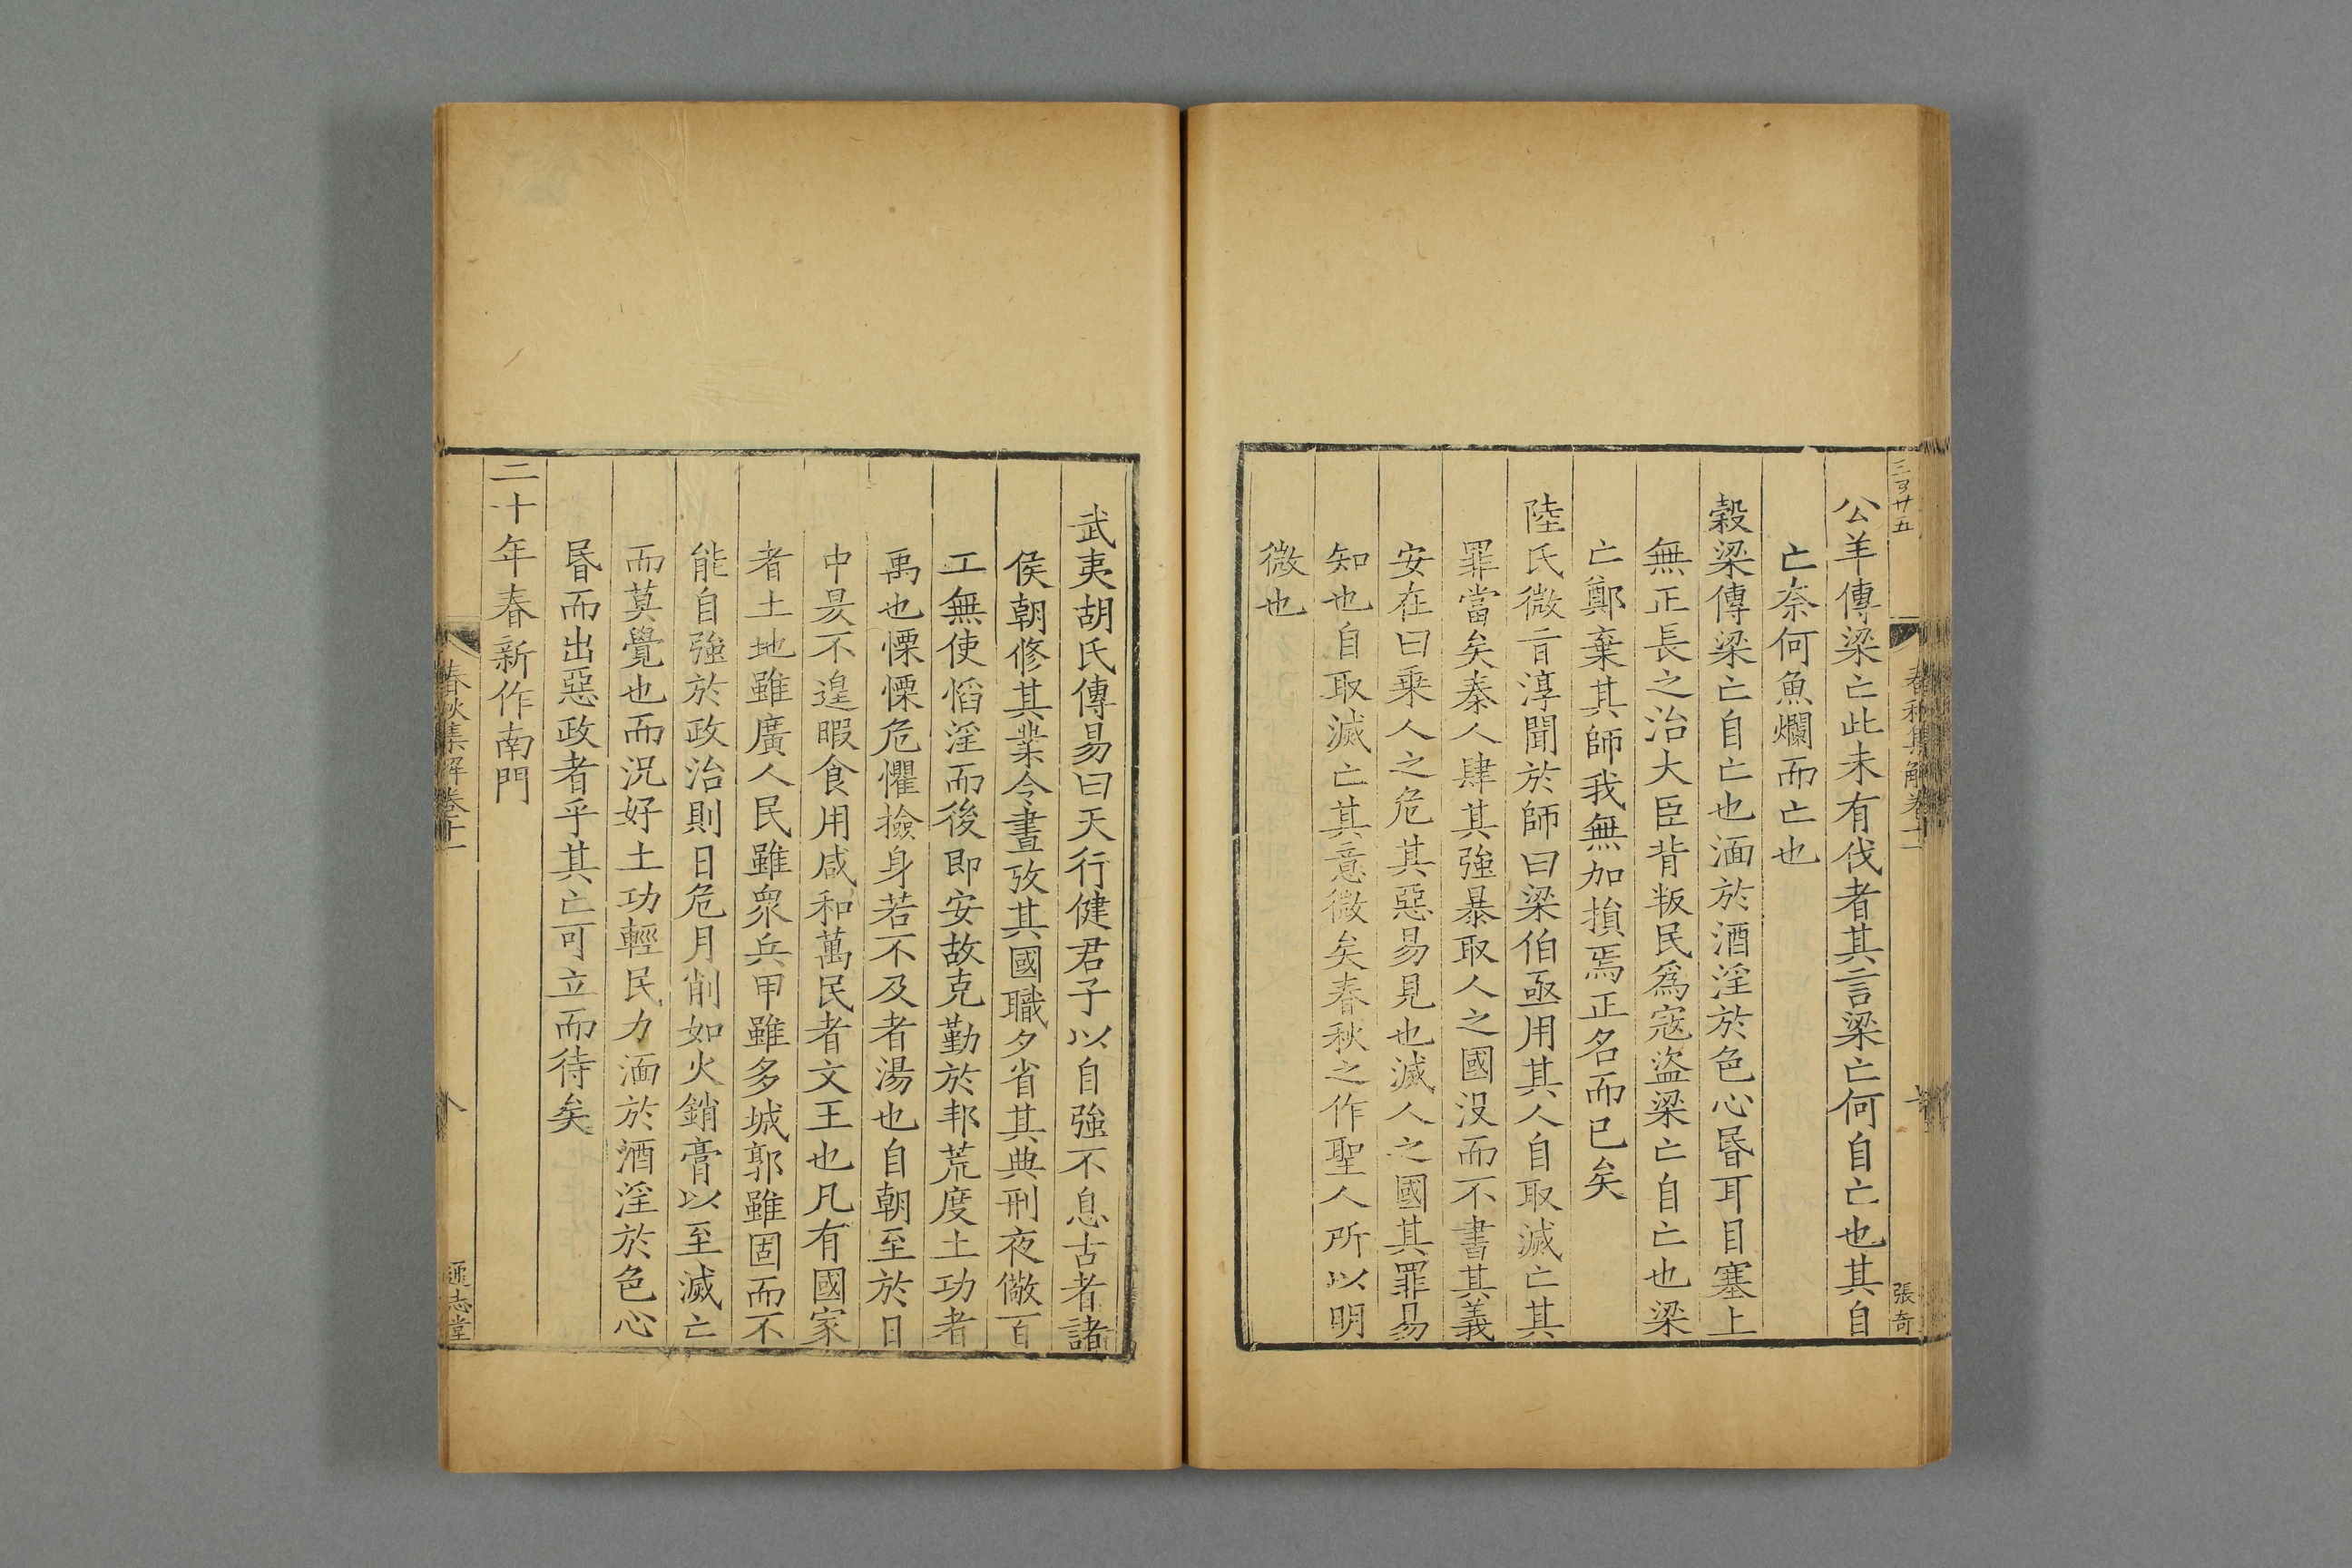 三百廿五
春秋集解卷十一
張奇
公羊傳梁亡此未有伐者其言梁亡何自亡也其自
亡奈何魚爛而亡也
穀梁傳梁亡自亡也湎於酒淫於色心昬耳目塞上
無正長之治大臣背叛民爲寇盜梁亡自亡也梁
亡鄭棄其師我無加損焉正名而已矣
陸氏微旨淳聞於師曰梁伯亟用其人自取滅亡其
罪當矣秦人肆其強暴取人之國没而不書其義
安在曰乗人之危其惡易見也滅人之國其罪易
知也自取滅亡其意微矣春秋之作聖人所以明
微也
武夷胡氏傳易曰天行健君子以自強不息古者諸
侯朝修其業令晝攷其國職夕省其典刑夜儆百
工無使慆淫而後即安故克勤於邦荒度土功者
禹也慄慄危懼撿身若不及者湯也自朝至於日
中昃不遑暇食用咸和萬民者文王也凡有國家
者土地雖廣人民雖衆兵甲雖多城郭雖固而不
能自強於政治則日危月削如火銷膏以至滅亡
而莫覺也而況好土功輕民力湎於酒淫於色心
昬而出惡政者乎其亡可立而待矣
二十年春新作南門
春秋集解卷十一
八
通志堂